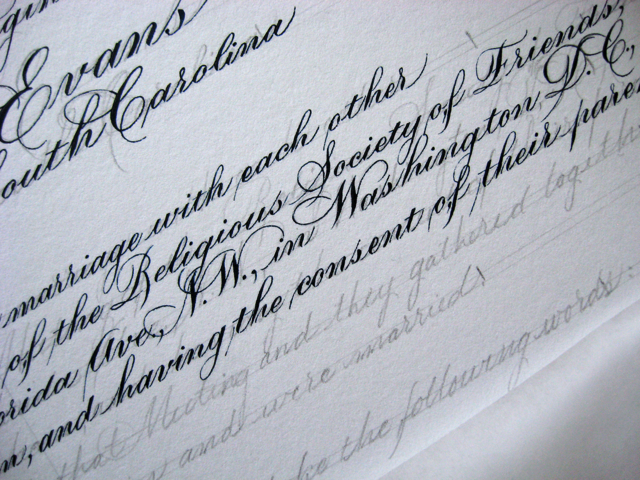 Evans
outh Carolina
marriage with each other
of the Religious Society of Friends,
orida Ave., N.W., in Washington D.C.,
and having the consent of their pare
that Meeting and they gathered togeth
and were married.
the following words: